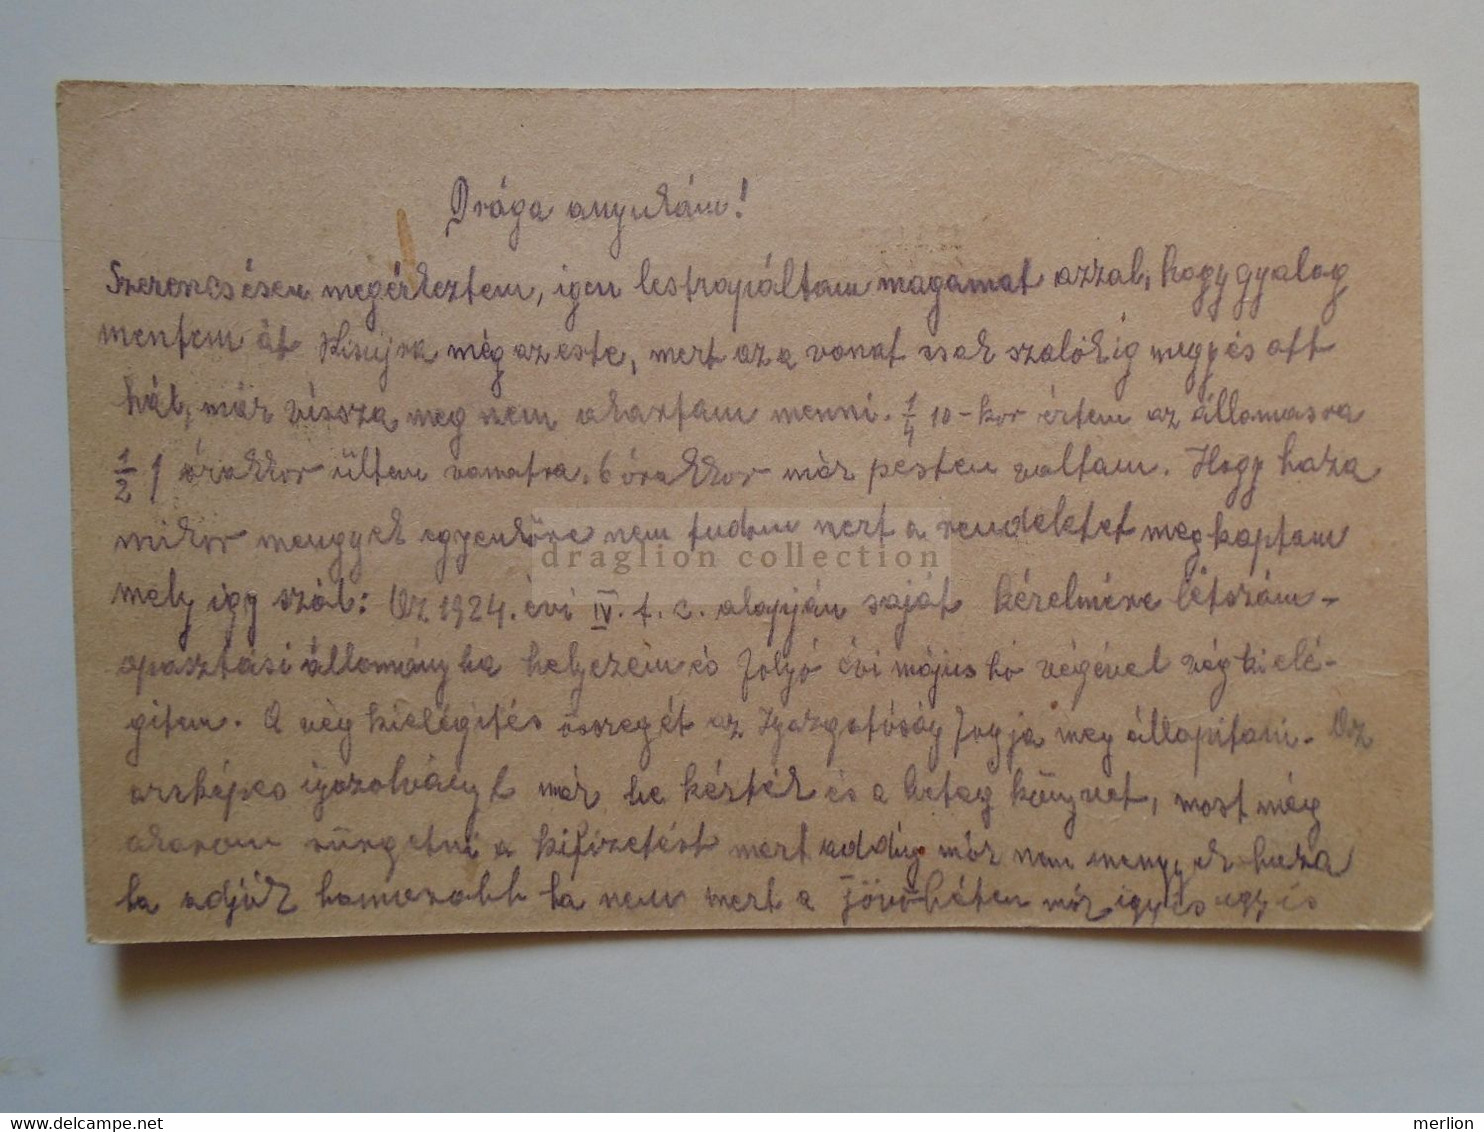 Drága anyukám!
Szerencsésen megérkeztem, igen lestrapáltam magamat azzal, hogy gyalog
mentem át Kisujra még az este, mert az a vonat csak szalókig megy és ott
hát, már vissza meg nem akartam menni. 1/4 10-kor értem az állomásra
1/2 1 órakkor ültem vonatra. 6 órakkor már pesten voltam. Hogy haza
mikor mengyek egyenlőre nem tudom mert a rendeletet megkaptam
mely igy szól: Az 1924. évi IV. t. c. alapján saját kérelmére létszám-
apasztási állományba helyezem és folyó évi május hó végével végkielé-
gitem. A végkielégités összegét az Igazgatóság fogja meg állapitani. Az
arcképes igazolványt már be kérték és a beteg könyvet, most még
akarom sürgetni a kifizetést mert addig már nem menyek haza
ha adják hamarabb ha nem mert a jövőhéten már igy is ugy is
draglion collection
merlion
www.delcampe.net